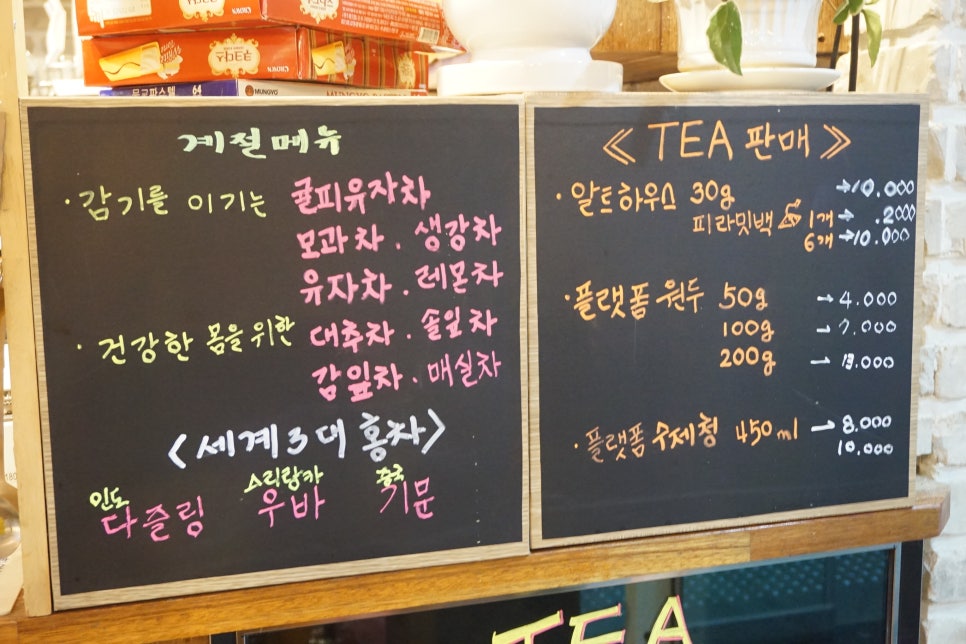 문교파스텔 64
MUNGYO
계절메뉴
· 감기를 이기는 귤피유자차
모과차 . 생강차
유자차 . 레몬차
· 건강한 몸을 위한 대추차 . 솔잎차
감잎차 . 매실차
<세계3대 홍차>
인도 스리랑카 중국
다즐링 우바 기문
《 TEA 판매 》
· 알트하우스 30g →10.000
피라밋백 1개 → .2000
6개 →10.000
· 플랫폼 원두 50g → 4.000
100g → 7.000
200g → 13.000
· 플랫폼 수제청 450ml → 8.000
10.000
TEA